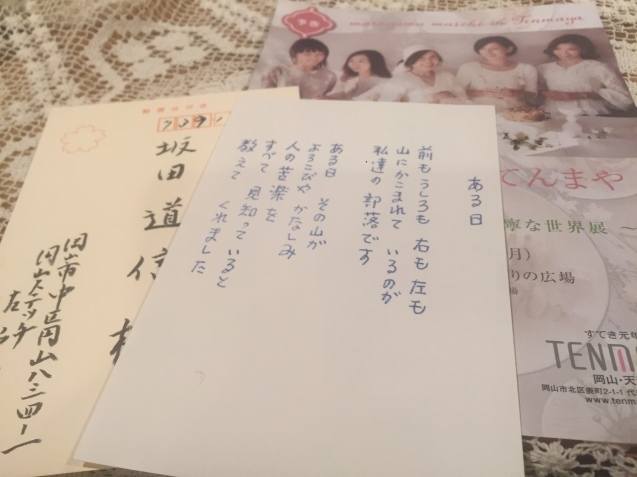 ある日
前もうしろも 右も左も
山にかこまれて いるのが
私達の部落です
ある日 その山が
よろこびや かなしみ
人の苦楽を
すべて 見知っていると
教えて くれました
郵便はがき
坂田道信様
岡山ステッチ
予告
marugamu marche in Tenmaya
てんまや
寧な世界展 ～
月）
りの広場
すてき元年
TENM
岡山・天
岡山市北区表町2-1-1 代
www.tenm